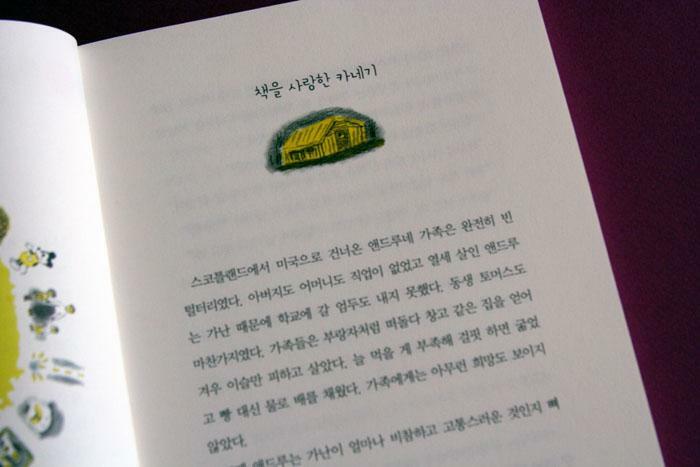 책을 사랑한 카네기
스코틀랜드에서 미국으로 건너온 앤드루네 가족은 완전히 빈
털터리였다. 아버지도 어머니도 직업이 없었고 열세 살인 앤드루
는 가난 때문에 학교에 갈 엄두도 내지 못했다. 동생 토머스도
마찬가지였다. 가족들은 부랑자처럼 떠돌다 창고 같은 집을 얻어
겨우 이슬만 피하고 살았다. 늘 먹을 게 부족해 걸핏 하면 굶었
고 빵 대신 물로 배를 채웠다. 가족에게는 아무런 희망도 보이지
않았다.
앤드루는 가난이 얼마나 비참하고 고통스러운 것인지 뼈